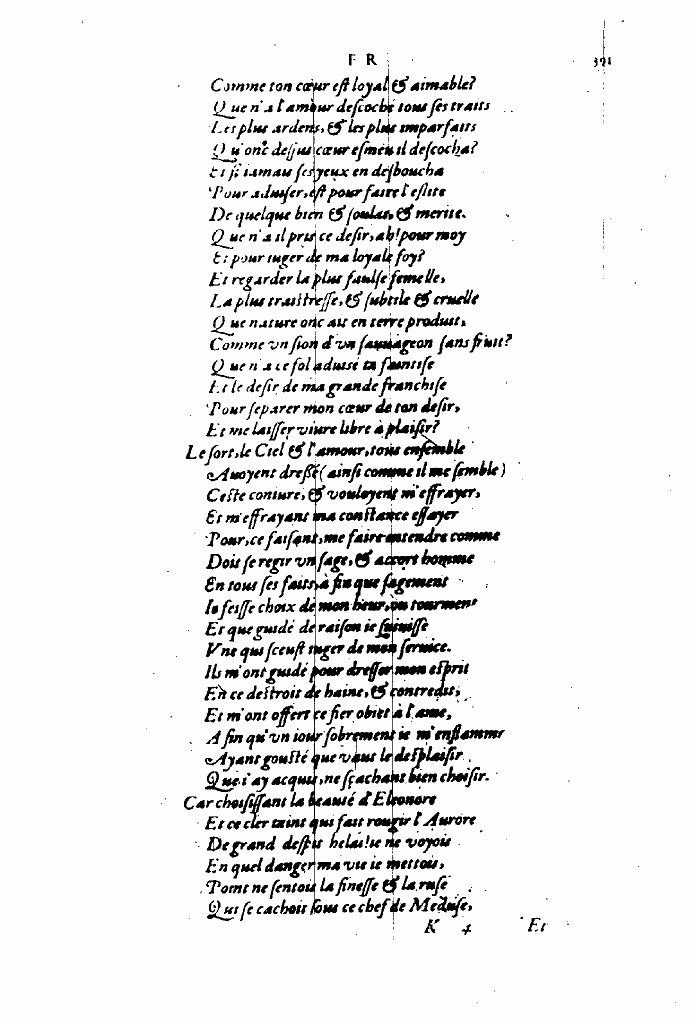 F R 391
Comme ton cœur eſt loyal & aimable?
Que n'a l'amour deſcoché tous ſes traits
Les plus ardens, & les plus imparfaits
Qu'onc deſſus cœur eſmeu il deſcocha?
Et ſi iamais ſes yeux en desboucha
Pour aduiſer, eſt pour faire l'eſlite
De quelque bien & ſoulas, & merite.
Que n'a il pris ce deſir, ah! pour moy
Et pour iuger de ma loyale foy?
Et regarder la plus faulſe femelle,
La plus traiſtreſſe, & ſubtile & cruelle
Que nature onc ait en terre produit,
Comme vn ſion d'vn ſauuageon ſans fruit?
Que n'a ce fol aduisé ta faintiſe
Et le deſir de ma grande franchiſe
Pour ſeparer mon cœur de ton deſir,
Et me laiſſer viure libre à plaiſir?
Le ſort, le Ciel & l'amour, tous enſemble
Auoyent dreſſé (ainſi comme il me ſemble)
Ceſte coniure, & vouloyent m'effrayer,
Et m'effrayant ma conſtance eſſayer
Pour, ce faiſant, me faire entendre comme
Doit ſe regir vn ſage, & accort homme
En tous ſes faits, à fin que ſagement
Ie feiſſe choix de mon heur, ou tourment
Et que guidé de raiſon ie ſuiuiſſe
Vne qui ſceuſt iuger de mon ſeruice.
Ils m'ont guidé pour dreſſer mon eſprit
En ce deſtroit de haine, & contredit,
Et m'ont offert ce fier obiet à l'ame,
A fin qu'vn iour ſobrement ie m'enflamme
Ayant gouſté que vaut le deſplaiſir
Que i'ay acquis, ne ſçachant bien choiſir.
Car choiſiſſant la beauté d'Eleonore
Et ce cler taint qui fait rougir l'Aurore
De grand deſpit helas! ie ne voyois
En quel danger ma vie ie mettois,
Point ne ſentois la fineſſe & la ruſe
Qui ſe cachoit ſous ce chef de Meduſe,
K 4 Et